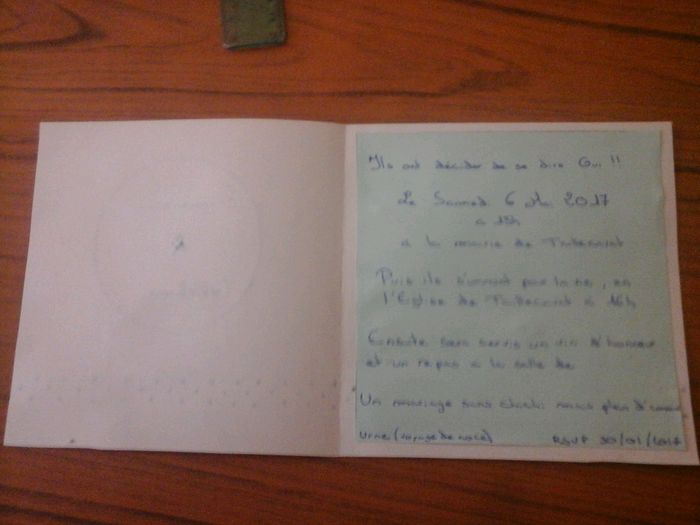 Ils ont décider de se dire Oui !!
Le Samedi 6 Mai 2017
a 15h
a la mairie de
Puis ils s'uniront par la foi, en
l'Eglise de a 16h
Ensuite sera servis un vin d'honneur
et un repas a la salle de
Un mariage sans mais plein d'amour
urne (voyage de noce) RSVP 30/01/2017